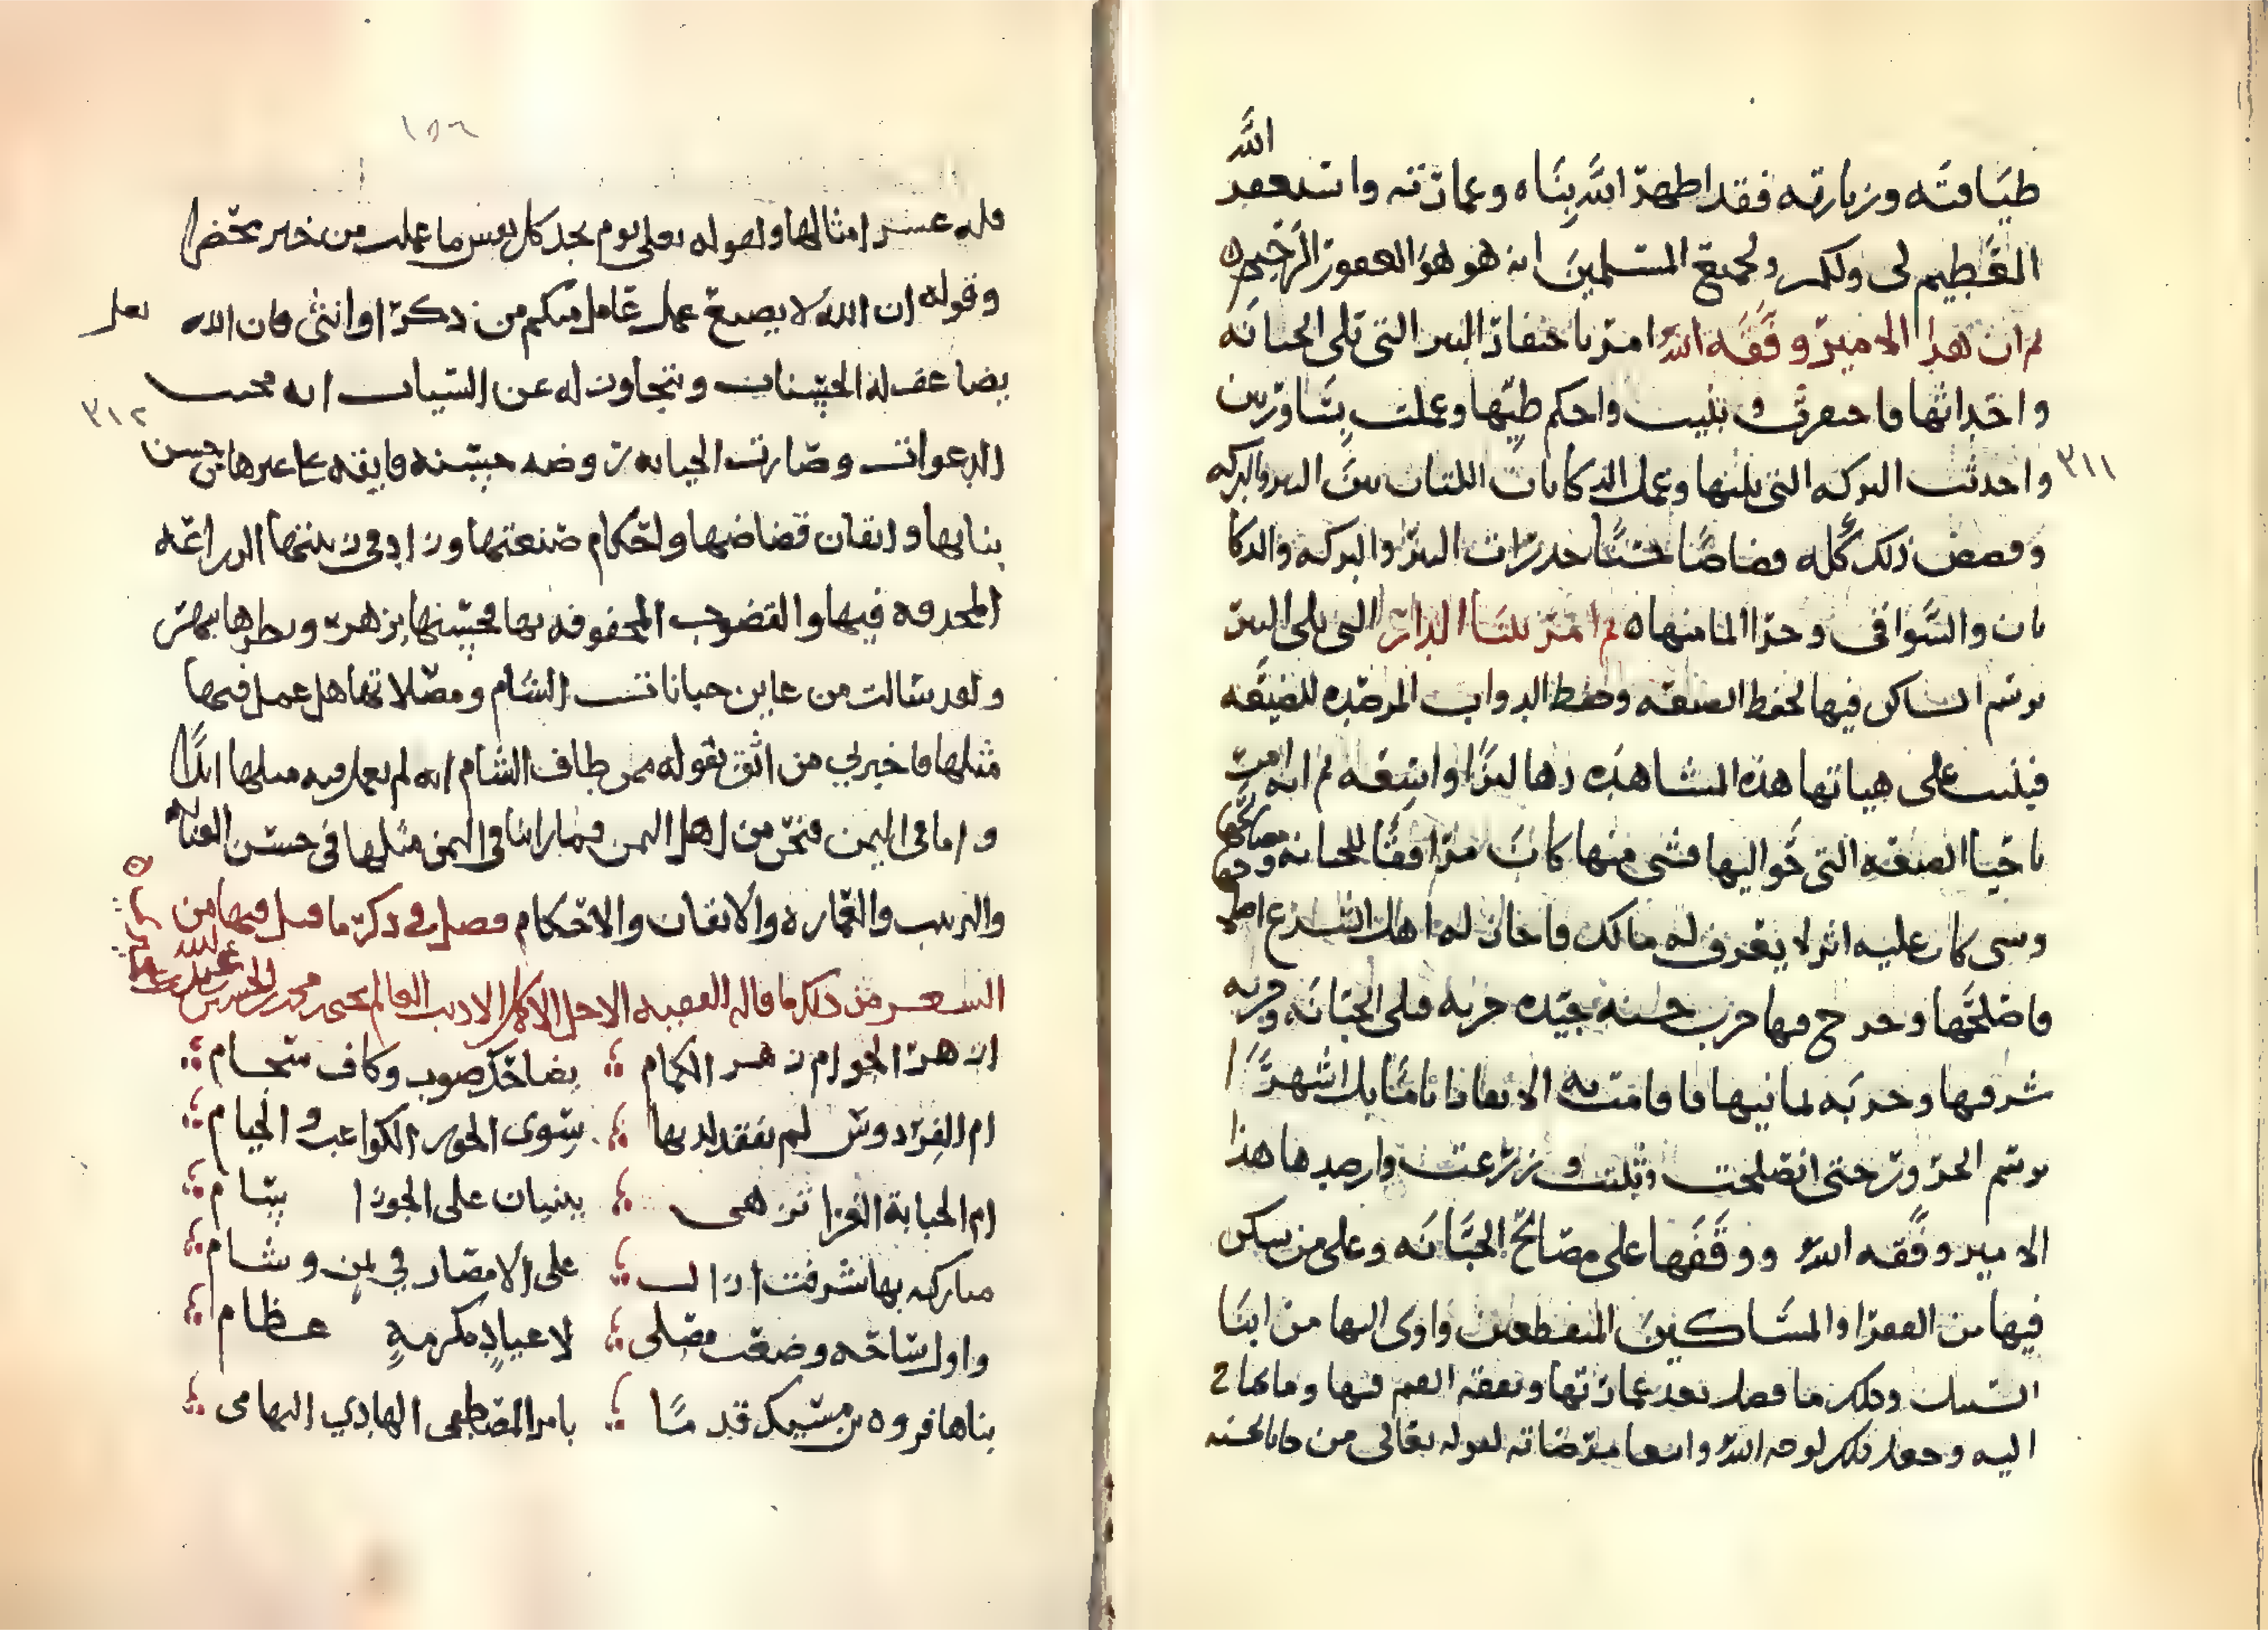 الله
طيافته وزيارته فقد اظهر الله بناه وعمارته واستغفر
العظيم لي ولكم ولجميع المسلمين انه هو هو الغفور الرحيم ه
ثم ان هذا الامير وفقه الله امر باحتفار البير التي تلي الجبانة
واحداثها فاحتفرت وبنيت واحكم طيها وعملت
٣١١
واحدثت البركه التي تليها وعمل الدكانات اللتان بين البير والبركه
وقصص ذلك كله قضاضا حسنا جدرات البير والبركه والدكا
نات والسواقي ومجر الما منها ه ثم امر ببنا الدار التي تلي البير
برسم الساكن فيها لحفظ الصنعه وحفظ الدواب المرصده للضيعه
فبنيت على هياتها هذه المشاهده دهاليزا واسعه ثم انه امر
باحيا الضيعه التي حواليها فشي منها كان مرافقا للجبانه
وشي كان عليه اثر لا يعرف له مالك فاجاز له اهل الشرع
فاصلحها وخرج فيها جرب حسنه جيده جربه قبلي الجبانه وجربه
شرقيها وجربه يمانيها فاقامت به الابقار اياما بل اشهرا
برسم الحرور حتى انصلحت وثلثت وزرعت وارصدها هذا
الامير وفقه الله ووقفها على مصالح الجبانه وعلى من سكن
فيها من الفقرا والمساكين المنقطعين واوى اليها من ابنا
السبيل وذلك ما فضل بعد عمارتها ونفقه القيم فيها وما يحتا ج
اليه وجعل ذلك لوجه الله وابتغا مرضاته لقوله تعالى من جا بالحسنه
١٥٦
فله عشر امثالها ولقوله تعلى يوم تجد كل نفس ما عملت من خير محضرا
وقوله ان الله لا يضيع عمل عامل منكم من ذكر او انثى فان الله تعلى
يضاعف له الحسنات ويتجاوز له عن السيات انه مجيب
٣١٢
الدعوات وصارت الجبانه روضه حسنه فايقه على غيرها في حسن
بنايها واتقان قضاضها واحكام صنعتها وزاد في زينتها الزراعه
المحدقه فيها والقضوب المحفوفه بها محسنها يزهر ونظرها يبهر
ولقد سالت من عاين جبانات الشام ومصلاتها هل عمل فيها
مثلها فاخبرني من اثق بقوله ممن طاف الشام انه لم يعمل فيه مثلها ابدا
واما في اليمن فنحن من اهل اليمن فما راينا في اليمن مثلها في حسن البنا
والترتيب والعماره والاتقان والاحكام فصل في ذكر ما قيل فيها من
الشعر من ذلك ما قاله الفقيه الاجل الاكمل الاديب العالم يحيى محمد بن الحسين
ازهر الجو ام زهر الكمام ؛ بضاحك صوب وكاف سجام
ام الفردوس لم نفقد لديها ؛ سوى الحور الكواعب والخيام
ام الجبانة الغرا تزهى ؛ ببنيان على الجوزا سام
مباركه بها شرفت ازال ؛ على الامصار في يمن وشام
واول ساحه وضعت مصلى ؛ لاعياد مكرمه عظام
بناها فروه بن مسيك قدما ؛ بامر المصطفى الهادي التهامي